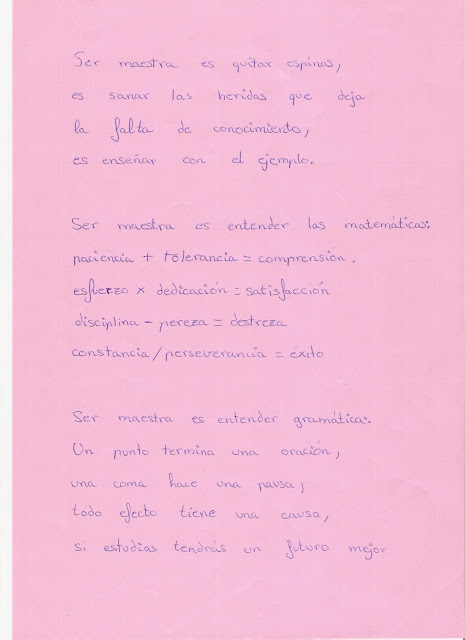 Ser maestra es quitar espinas,
es sanar las heridas que deja
la falta de conocimiento,
es enseñar con el ejemplo.
Ser maestra es entender las matemáticas:
paciencia + tolerancia = comprensión.
esfuerzo x dedicación = satisfacción
disciplina - pereza = destreza
constancia / perseverancia = éxito
Ser maestra es entender gramática:
Un punto termina una oración,
una coma hace una pausa,
todo efecto tiene una causa,
si estudias tendrás un futuro mejor